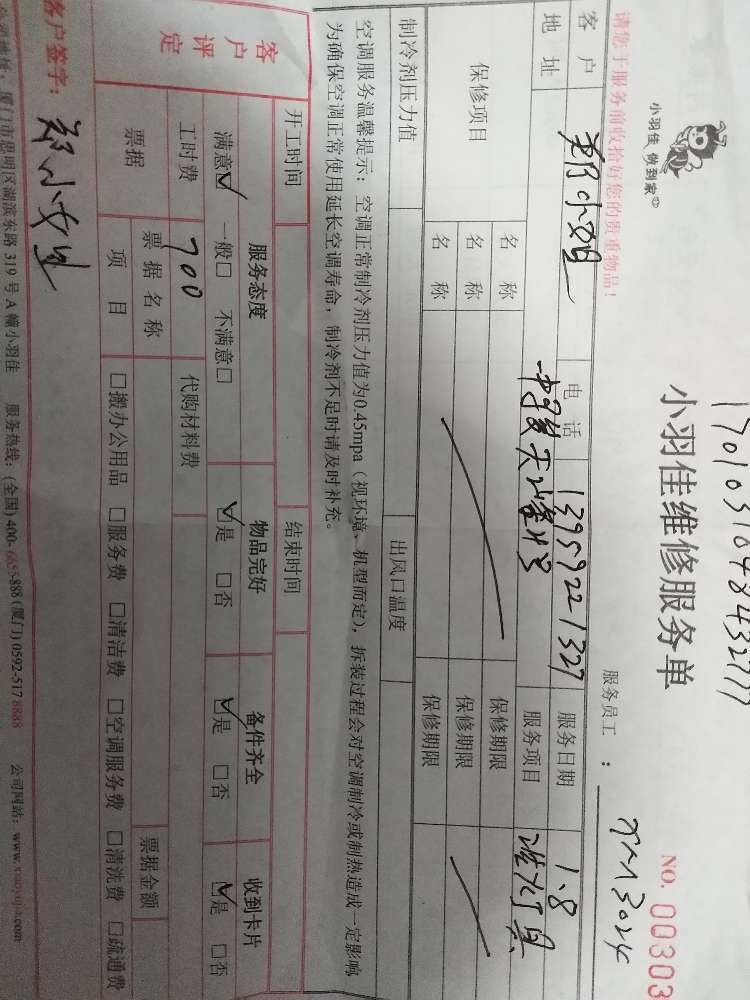 17010310484432777
小羽佳 做到家
小羽佳维修服务单
NO. 00303
请您于服务前收拾好您的贵重物品!
服务员工: XM3024
客户 郑小姐 电话 13959221327 服务日期 1.8
地址 服务项目
保修项目 名称 保修期限
名称 保修期限
名称 保修期限
制冷剂压力值 出风口温度
空调服务温馨提示:空调正常制冷剂压力值为0.45mpa(视环境、机型而定),拆装过程会对空调制冷或制热造成一定影响
为确保空调正常使用延长空调寿命,制冷剂不足时请及时补充。
开工时间 结束时间
客户评定 服务态度 物品完好 备件齐全 收到卡片
满意☑ 一般□ 不满意□ ☑是 □否 ☑是 □否 ☑是 □否
工时费 700 代购材料费
票据 票据名称 票据金额
项目 □搬办公用品 □服务费 □清洁费 □空调服务费 □清洗费 □疏通费
客户签字:
公司地址:厦门市思明区湖滨东路319号A幢小羽佳 服务热线:(全国)400-6655-888 (厦门)0592-517 8888 公司网站:www.xiaoyujia.com